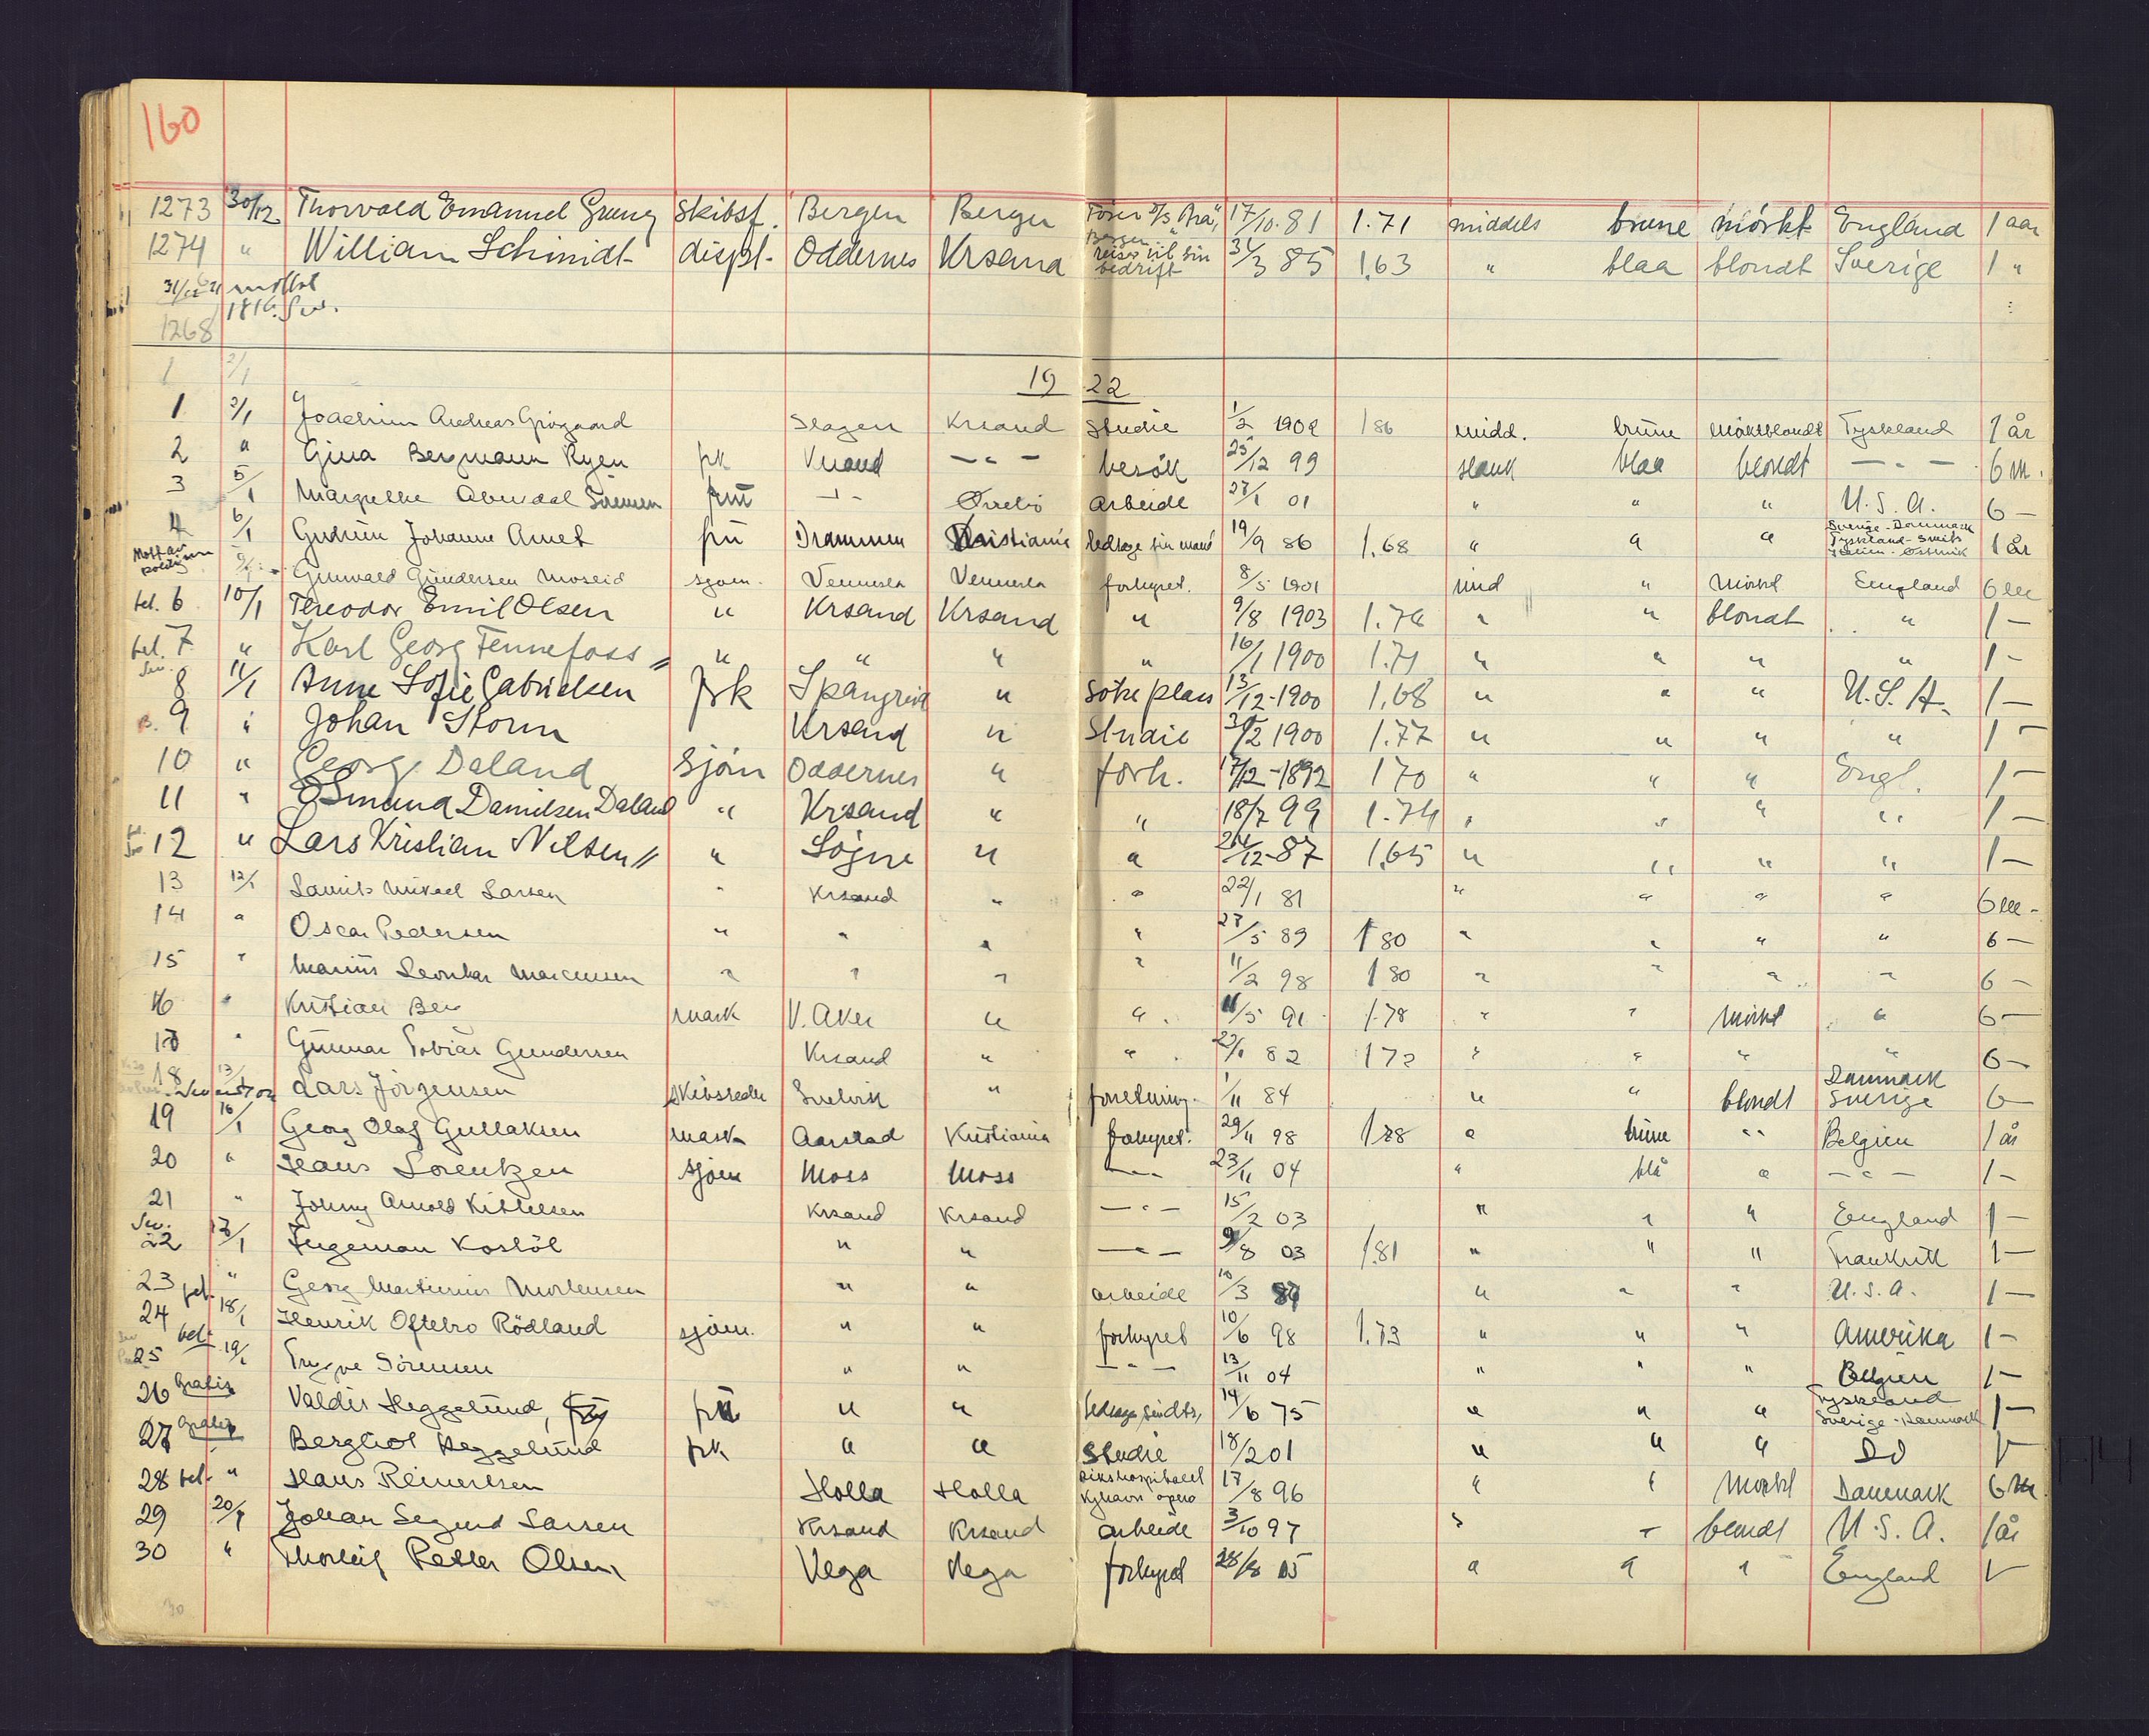 160
1273 30/12 Thorvald Emanuel Grung Skibsf. Bergen Bergen Fører 17/10.81 1.71 middels brune mörkt England 1 aar
1274 " William Schmidt dispt. Oddernes Krsand reise til sin bedrift 31/3 85 1.63 " blaa blondt Sverige 1 "
1816.
1268
1 2/1
19 22
1 2/1 Joachim Andreas Grögaard Slagen Krsand Studie 1/2 1902 186 midd. brune mörkblondt Tyskland 1 år
2 " Gina Bergmann Ryen frk Krsand - " - besök 25/12 99 slank blaa blondt - " - 6 m.
3 5/1 Margrethe Abendal Sörensen fru - " - Örebro Arbeide 27/1 01 " " " U.S.A. 6 -
4 6/1 Gudrun Johanne Arnet fru Drammen Kristiania ledsage sin mand 19/9 86 1.68 " " " Sverige - Danmark Tyskland - Italien - 1 år
Gunvald Gundersen Moseid sjöm. Vennesla Vennesla forhyret. 8/5 1901 mid " Mörkt England 6 m
bet. 6 10/1 Theodor Emil Olsen " Krsand Krsand " 9/8 1903 1.76 " " blondt " 1 -
bet. 7 " Karl Georg Fennefoss " " " " 16/1 1900 1.71 " " " " 1 -
8 11/1 Anne Sofie Gabrielsen Frk Spangreid " Söke plass 13/12-1900 1.68 " " " U.S.A. 1 -
9 " Johan Storm Krsand " Studie 1900 1.77 " " " " 1 -
10 " Georg Daland Sjöm Oddernes " forh. 17/12-1892 170 " " " Engl. 1 -
11 " Osmund Danielsen Daland " Krsand " " 18/7 99 1.74 " " " " 1 -
12 " Lars Kristian Nilsen " Søgne " " 12-87 1.65 " " " " 1 -
13 12/1 Laurits Mikael Larsen " Krsand " " 22/1 81 " " " " 6 m -
14 " Oscar Pedersen " " " " 27/5 89 1 80 " " " " 6 -
15 " Marius " " " " 11/2 98 1 80 " " " " 6 -
16 " Kristian Berg mask V. Aker " " 11/5 91 1.78 " " Mörkt " 6 -
17 " Gunnar Tobias Gundersen Krsand " " 82 172 " " " " 6 -
18 13/1 Lars Jörgensen skibsreder Svelvik " forretning. 1/11 84 " " blondt Danmark Sverige 6 -
19 16/1 Georg Olaf Gullaksen mask Aarstad Kristiania forhyret. 29/11 98 178 " brune " Belgien 1 år
20 " Hans Lorentzen sjöm Moss Moss - " - 23/11 04 " blå " - " - 1 -
21 " Johny Arnold Kittelsen Krsand Krsand - " - 15/2 03 " " " England 1 -
22 17/1 Ingeman Kostöl " " - " - 9/8 03 1.81 " " " Frankrik 1 -
23 " Georg Martinius Mortensen " " arbeide 10/3 " " " U.S.A. 1 -
24 bet. 18/1 Henrik Oftebro Rödland sjöm. " " forhyret 10/6 98 1.73 " " " Amerika 1 -
25 bet. 19/1 Trygve Sörensen " " - " - 13/11 04 " " " Belgien 1 -
26 Gratis Valdis Heggelund, fru " " ledsage 14/6 75 " " " Tyskland Sverige - Danmark 1 -
27 Gratis Bergliot Heggelund frk " " Studie 18/2 01 " " " Do 1 -
28 bet. " Hans Reinertsen Holla Holla Rikshospitalet Kjhavn opera 17/8 96 " " Mörkt Danmark 6 m.
29 20/1 Johan Sigurd Larsen Krsand Krsand arbeide 3/10 97 " " blondt U.S.A. 1 år
30 " Thorleif Petter Olsen Vega Vega forhyret 28/8 05 " " " England 1 -
30